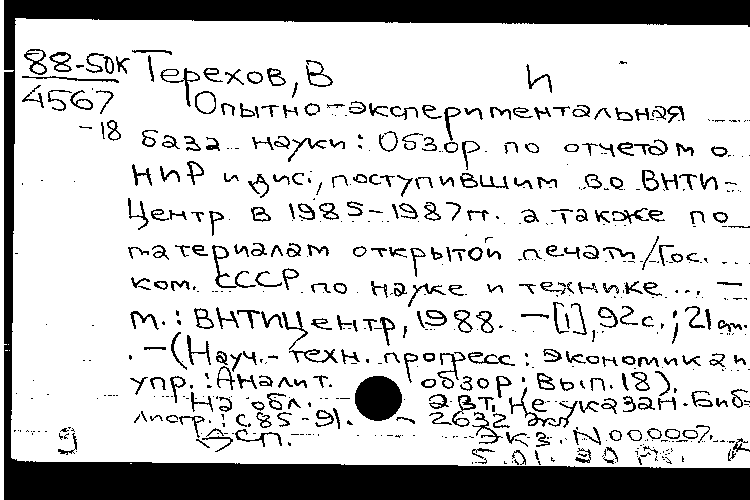 88-50К Терехов, В И
4567 Опытно-экспериментальная
-18 база науки: Обзор по отчетам о
НИР и дис., поступившим во ВНТИ-
Центр в 1985-1987 гг. а также по
материалам открытой печати/Гос.
ком. СССР по науке и технике ... —
М.: ВНТИЦентр, 1988. — [1], 92 с.; 21 см.
. — (Науч.-техн. прогресс: Экономика и
упр.: Аналит. обзор; Вып. 18).
На обл. авт. не указан. Биб-
лиогр.: с. 85-91. — 2632 экз
9 ДСП. Экз. N 000007.
5.01. 30